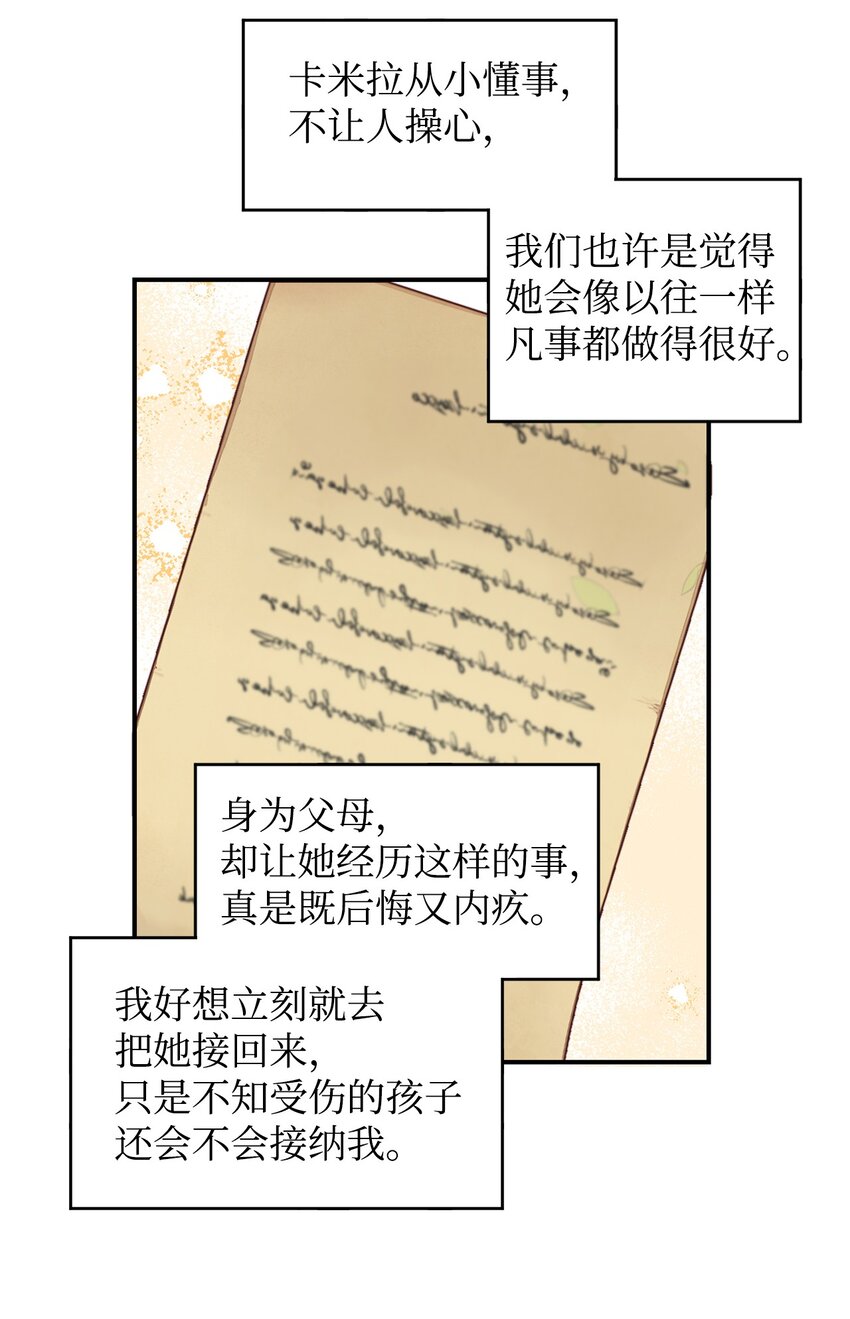 卡米拉从小懂事,
不让人操心,
我们也许是觉得
她会像以往一样
凡事都做得很好。
身为父母,
却让她经历这样的事,
真是既后悔又内疚。
我好想立刻就去
把她接回来,
只是不知受伤的孩子
还会不会接纳我。